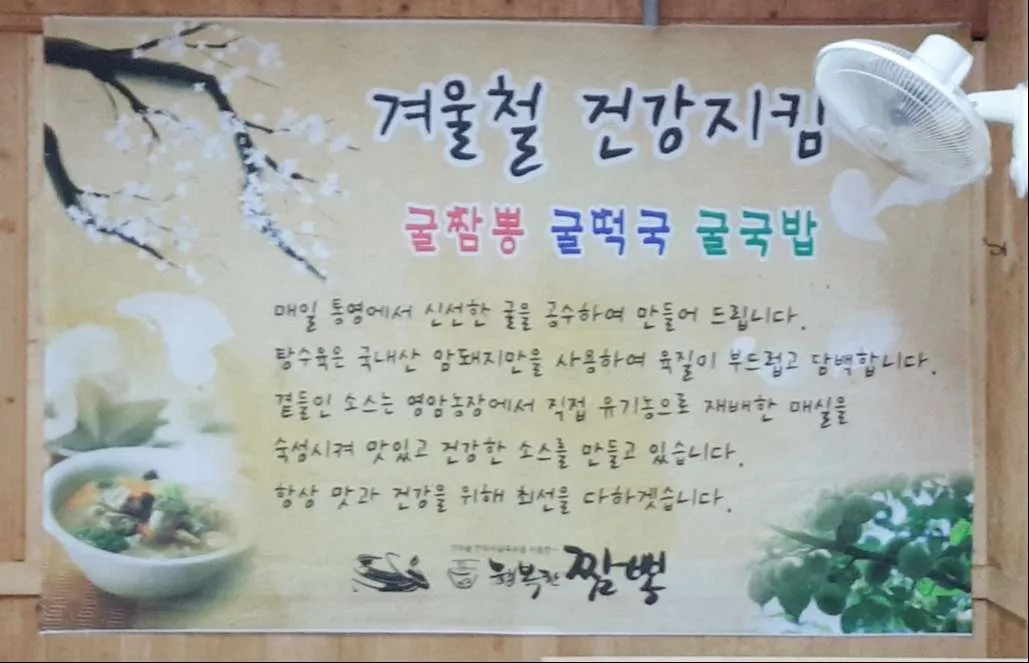 겨울철 건강지킴
굴짬뽕 굴떡국 굴국밥
매일 통영에서 신선한 굴을 공수하여 만들어 드립니다.
탕수육은 국내산 암퇘지만을 사용하여 육질이 부드럽고 담백합니다.
곁들인 소스는 영암농장에서 직접 유기농으로 재배한 매실을
숙성시켜 맛있고 건강한 소스를 만들고 있습니다.
항상 맛과 건강을 위해 최선을 다하겟습니다.
짬뽕